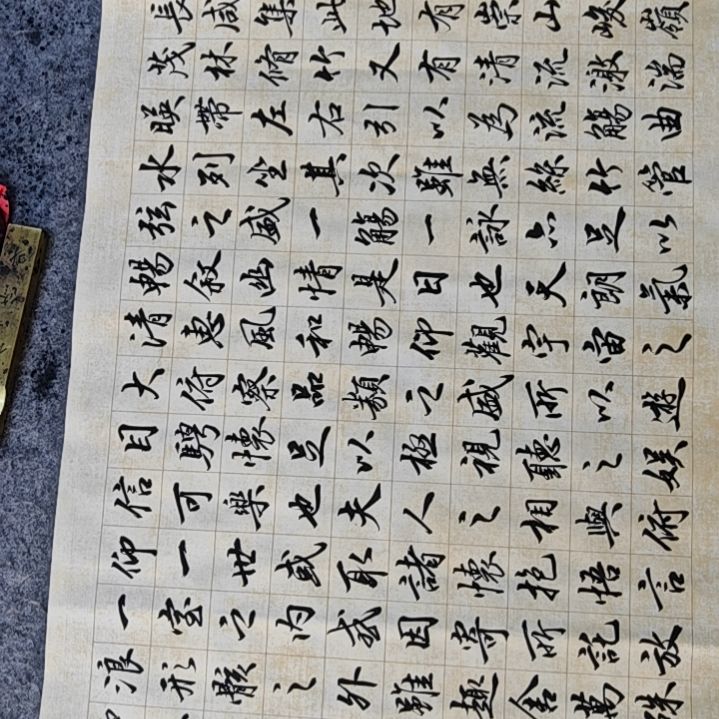 長咸集此地有崇山峻嶺
茂林脩竹又有清流激湍
暎帶左右引以為流觴曲
水列坐其次雖無絲竹管
弦之盛一觴一詠亦足以
暢叙幽情是日也天朗氣
清惠風和暢仰觀宇宙之
大俯察品類之盛所以遊
目騁懷足以極視聽之娱
信可樂也夫人之相與俯
仰一世或取諸懷抱悟言
一室之内或因寄所託放
浪形骸之外雖趣舍萬殊